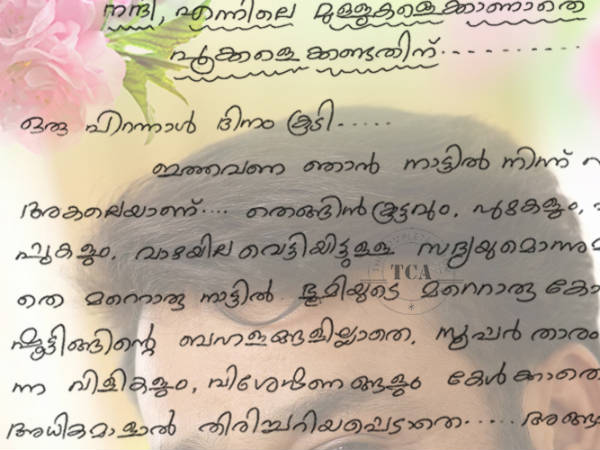 നന്ദി, എന്നിലെ മുള്ളുകളെക്കാണാതെ
പൂക്കളെ ക്കണ്ടതിന്- - - - - - - - - - -
ഒരു പിറന്നാൾ ദിനം കൂടി.....
ഇത്തവണ ഞാൻ നാട്ടിൽ നിന്ന്
അകലെയാണ്.... തെങ്ങിൻകൂട്ടവും, പുഴകളും,
പ്പുകളും, വാഴയില വെട്ടിയിട്ടുള്ള സദ്യയുമൊന്നു
TCA
തെ മറ്റൊരു നാട്ടിൽ ഭൂമിയുടെ മറ്റൊരു കോ
ഷൂട്ടിങ്ങിന്റെ ബഹളങ്ങളില്ലാതെ, സൂപ്പർ താരം
ന്ന വിളികളും, വിശേഷണങ്ങളും കേൾക്കാതെ
അധികമാളാൽ തിരിച്ചറിയപ്പെടാതെ..... അങ്ങ